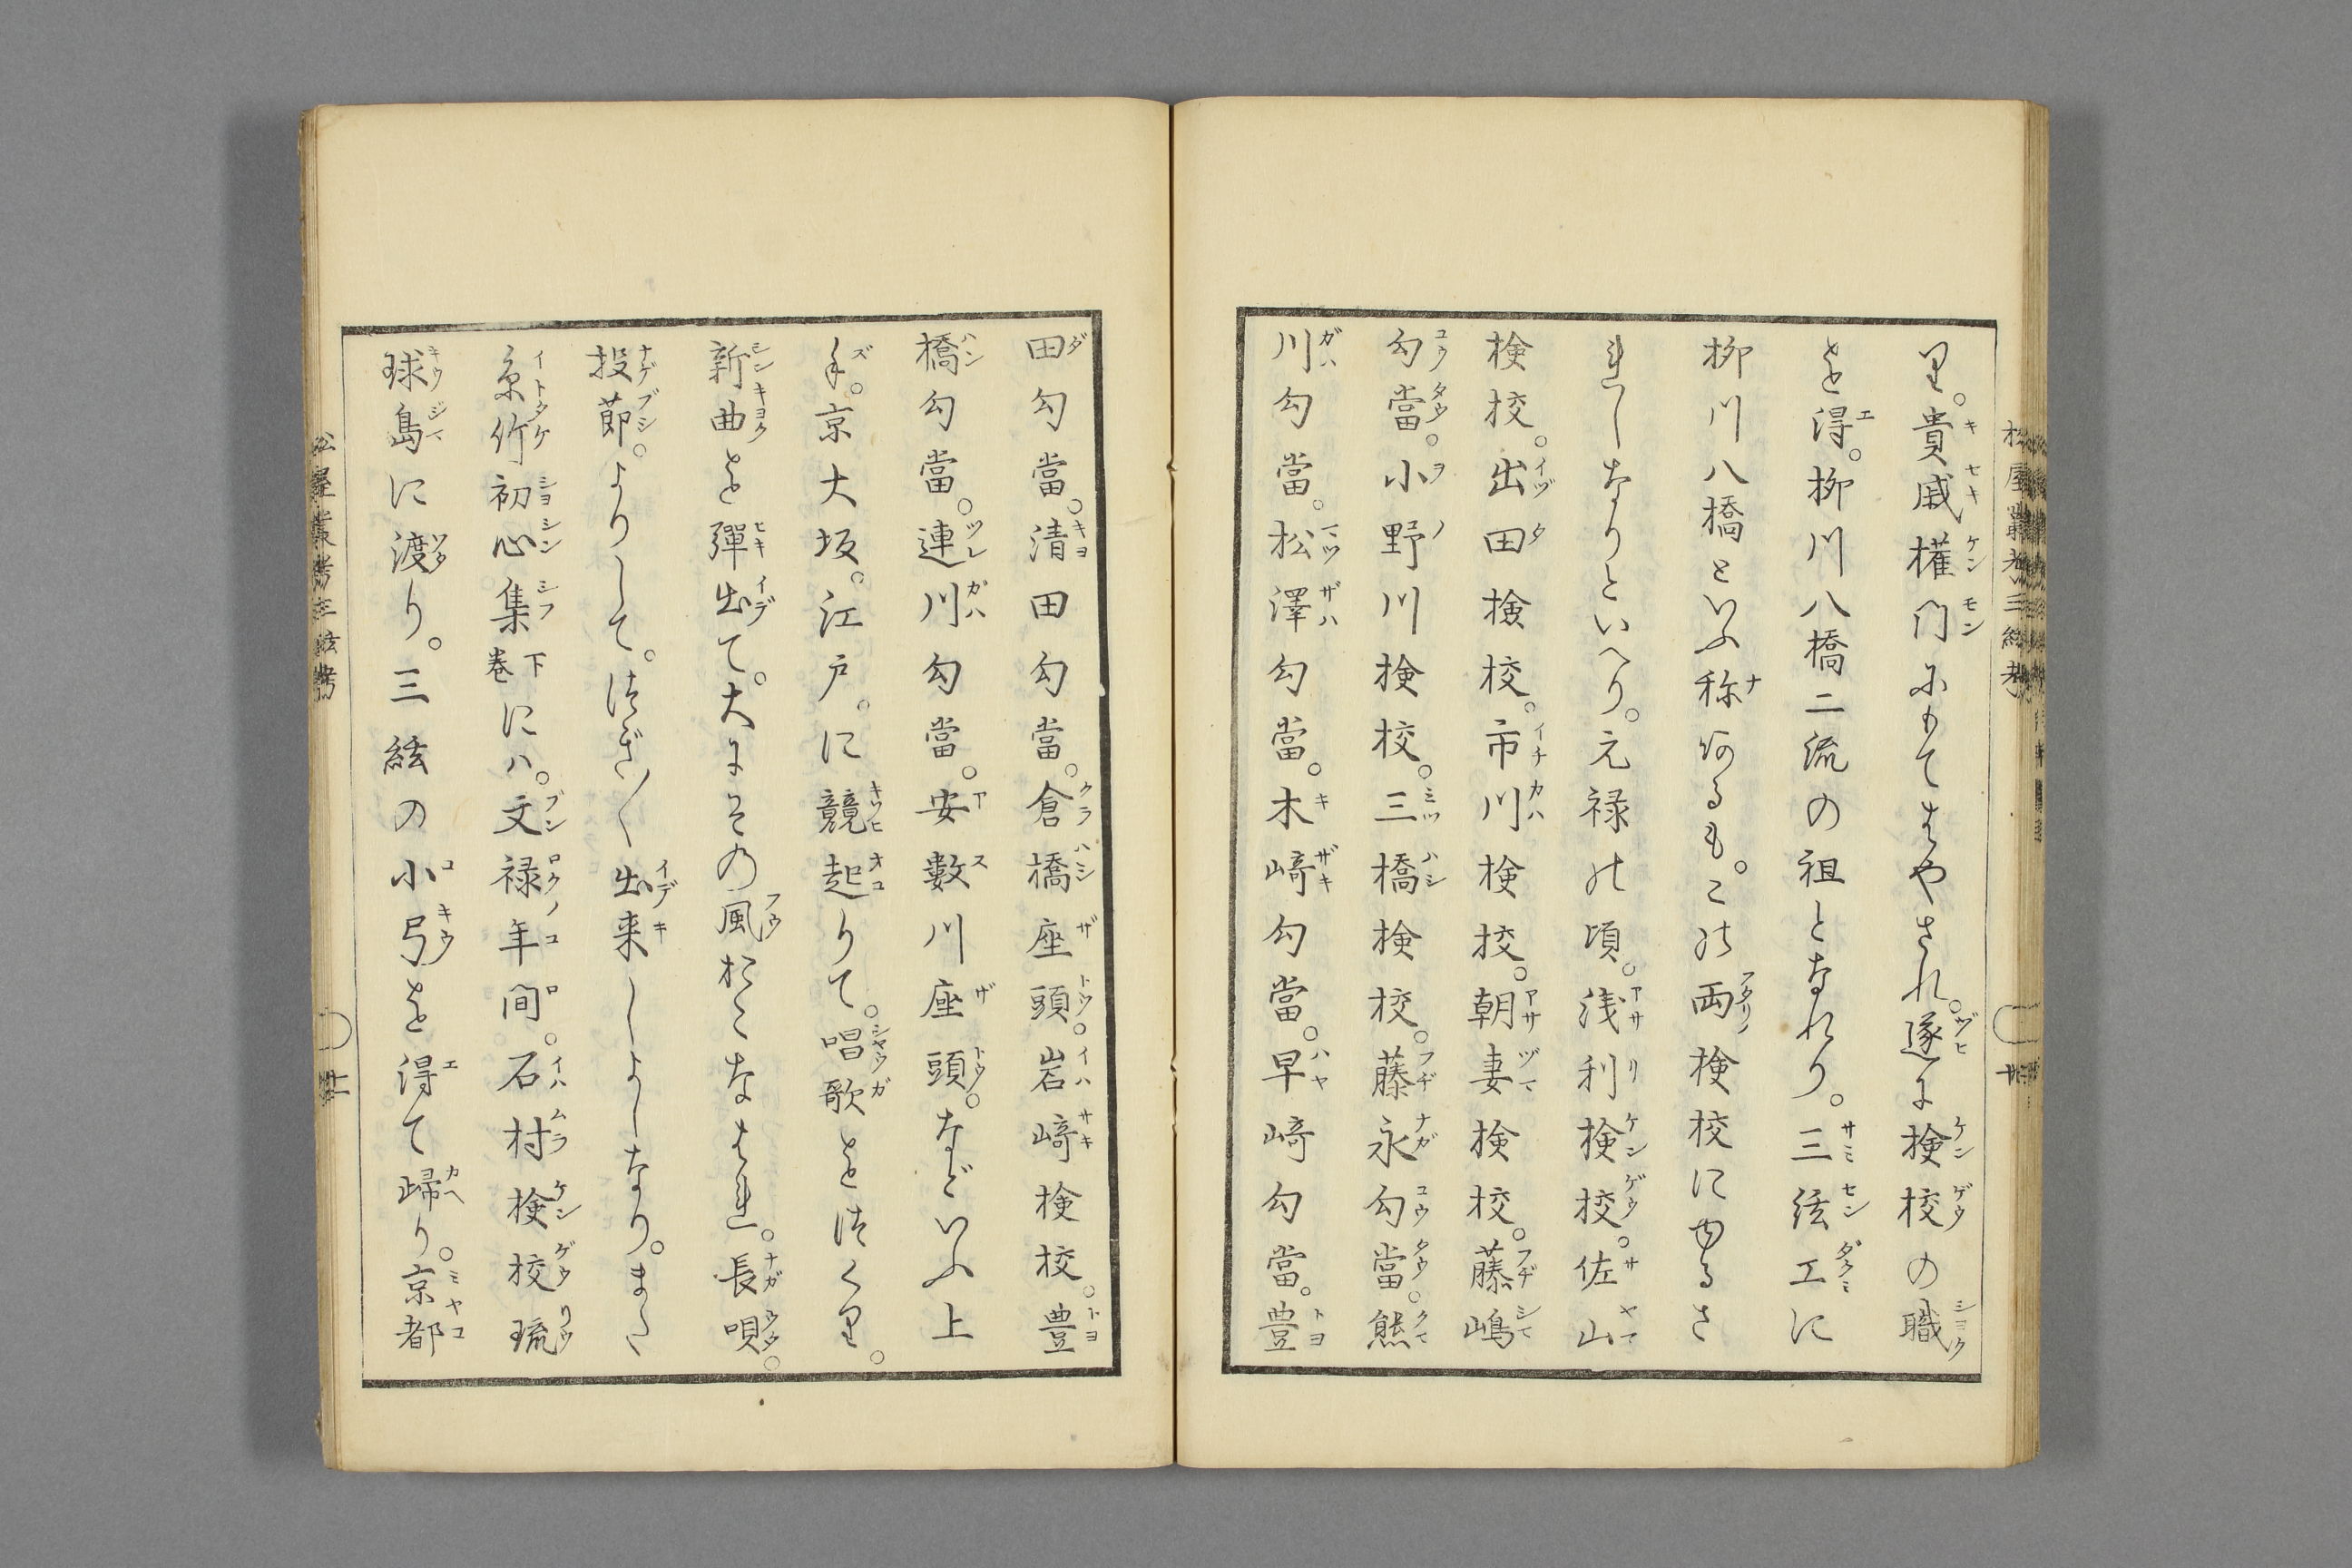 里。貴戚權門にもてはやされ。遂に検校の職
を得。柳川八橋二流の祖となれり。三絃工に
柳川八橋といふ称あるも。この両検校にゆるさ
れしなりといへり。元禄の頃。浅利検校。佐山
検校。出田検校。市川検校。朝妻検校。藤嶋
勾當。小野川検校。三橋検校。藤永勾當。熊
川勾當。松澤勾當。木﨑勾當。早﨑勾當。豊
田勾當。清田勾當。倉橋座頭。岩﨑検校。豊
橋勾當。連川勾當。安數川座頭。などいふ上
手。京大坂。江戸。に競起りて。唱歌をつくり。
新曲を彈出て。大にその風おこなはれ。長唄。
投節。よりして。つぎ〳〵出来しよしなり。また
糸竹初心集下巻には。文禄年間。石村検校琉
球島に渡り。三絃の小弓を得て歸り。京都
松屋叢考三絃考